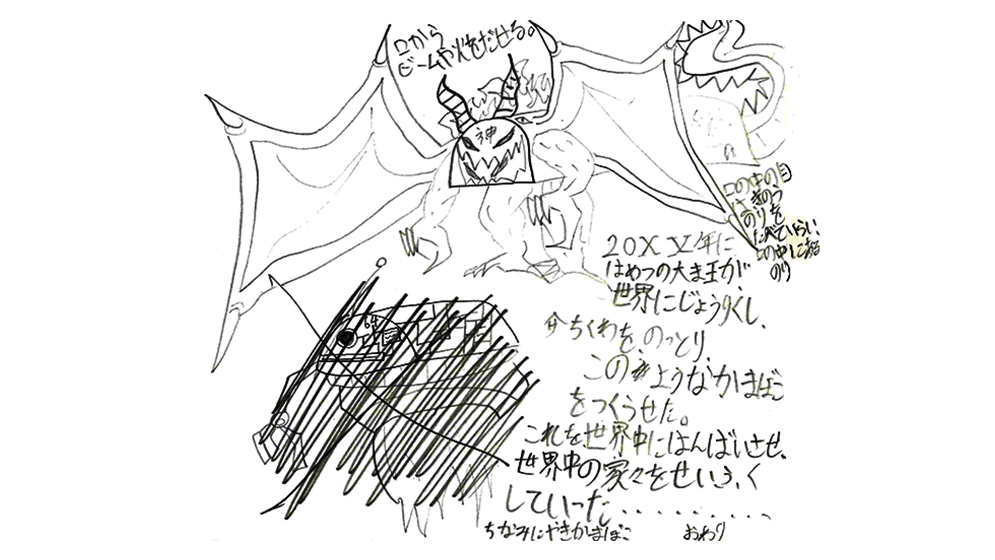 口から
ビームや火をだせる。
神
この中の目
はきのう
のりを
たべていらい
口の中にある
のり
20XX年に
はめつの大ま王が
世界にじょうりくし、
ちくわをのっとり、
このようなかまぼこ
をつくらせた。
これを世界中にはんばいさせ、
世界中の家々をせいふく
していった.........
ちなみにやきかまぼこ
おわり